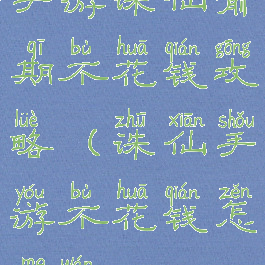 手游诛仙前
qī bù huā qián gōng
期不花钱攻
lüè zhū xiān shǒu
略（诛仙手
yóu bù huā qián zěn
游不花钱怎
me wán